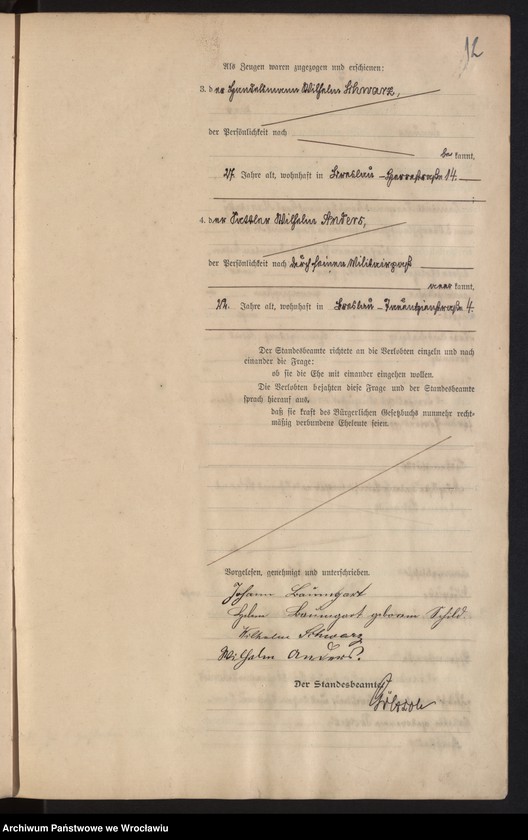 12
Als Zeugen waren zugezogen und erschienen:
3. der Handelsmann Wilhelm Schwarz,
der Persönlichkeit nach
be kannt,
27 Jahre alt, wohnhaft in Breslau –
14.
4. der Sattler Wilhelm Anders,
der Persönlichkeit nach durch seinen Militairpaß
aner kannt,
22 Jahre alt, wohnhaft in Breslau – Tauentzienstraße 4.
Der Standesbeamte richtete an die Verlobten einzeln und nach
einander die Frage:
ob sie die Ehe mit einander eingehen wollen.
Die Verlobten bejahten diese Frage und der Standesbeamte
sprach hierauf aus,
daß sie kraft des Bürgerlichen Gesetzbuchs nunmehr recht-
mäßig verbundene Eheleute seien.
Vorgelesen, genehmigt und unterschrieben.
Johann Baumgart
Helene Baumgart geborene Schild.
Wilhelm Schwarz
Wilhelm Anders.
Der Standesbeamte
Archiwum Państwowe we Wrocławiu